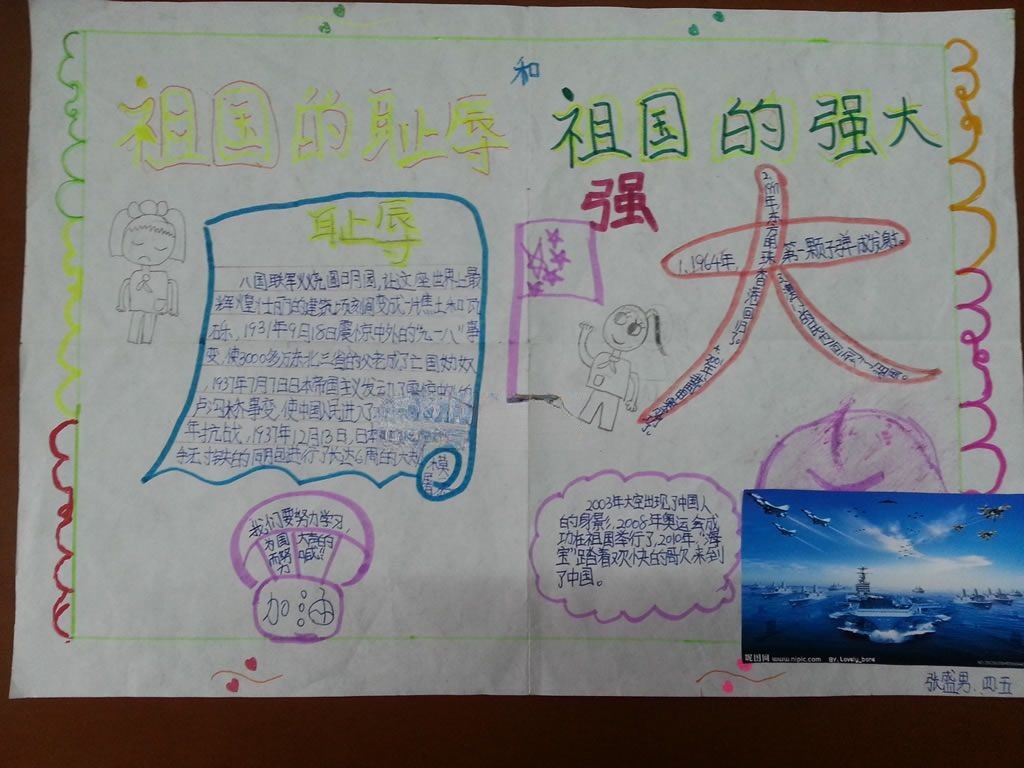 祖国的耻辱
和
祖国的强大
耻辱
八国联军火烧圆明园,让这座世界上最
辉煌壮丽的建筑顷刻间变成一片焦土和瓦
砾乐,1931年9月18日震惊中外的"九一八"事
变,使3000多万东北三省的父老成了亡国奴
,1937年7月7日日本帝国主义发动了震惊
卢沟桥事变,使中国人民进入了
年抗战,1937年12月13日,日本
的同时进行了长达6周的大
我们要努力学习,
为国
而努
力
大声的
喊!!
加油
强
1.1964年,第一颗子弹成发射。
2.1997年东方明珠香港回归了。
2003年太空出现了中国人
的身影,2008年奥运会成
功在祖国举行了,2010年"海
宝"踏着欢快的脚步来到
了中国。
昵图网 www.nipic.com BY: Lovely_bone
张盛男.四五